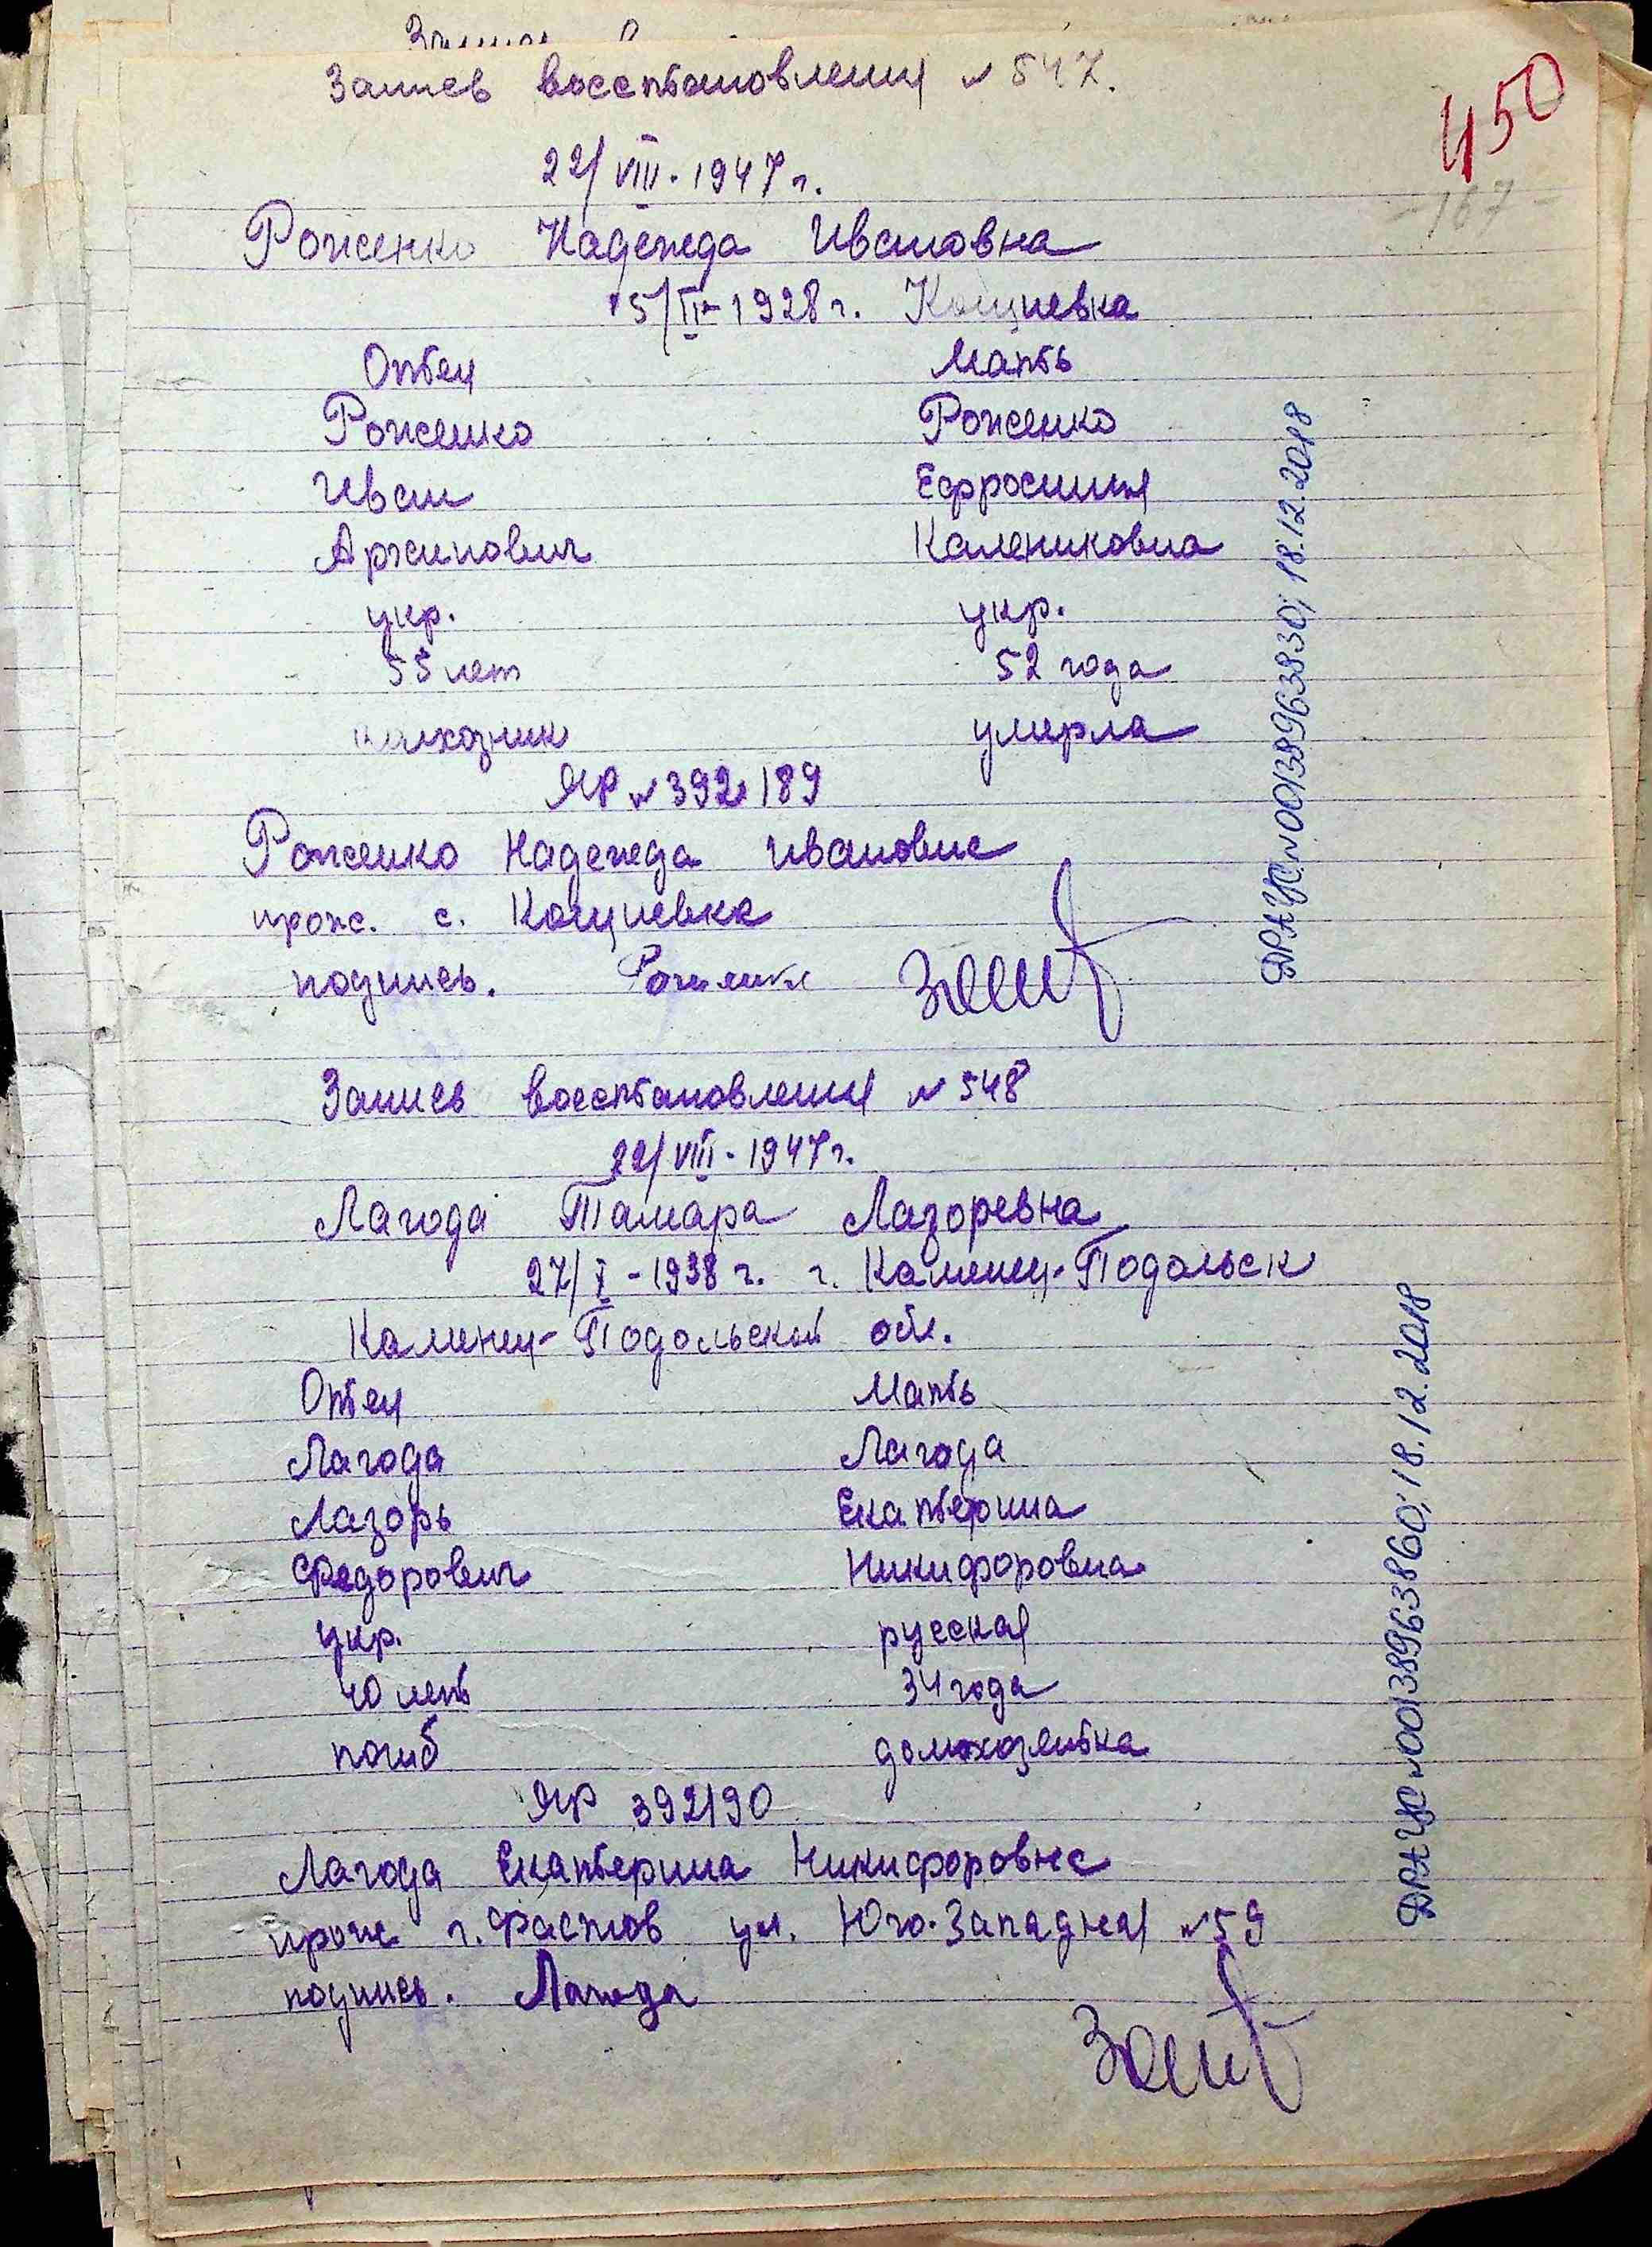 450
- 167 -
Запись восстановления № 547.
22/VIII-1947 г.
Роженко Надежда Ивановна
15/II-1928 г. Кощиевка
Отец Мать
Роженко Роженко
Иван Ефросиния
Архипович Калениковна
укр. укр.
55 лет 52 года
колхозник умерла
ЯР № 392189
Роженко Надежда Ивановне
прож. с. Кощиевка
подпись. Роженко
ДРАЦС №00138963830; 18.12.2018
Запись восстановления № 548
22/VIII-1947 г.
Лагода Тамара Лазоревна
27/I-1938 г. г. Каменец-Подольск
Каменец-Подольской обл.
Отец Мать
Лагода Лагода
Лазорь Екатерина
Федорович Никифоровна
укр. русская
40 лет 34 года
погиб домохозяйка
ЯР 392190
Лагода Екатерина Никифоровне
прож г. Фастов ул. Юго-Западная №59
подпись. Лагода
ДРАЦС №00138963860; 18.12.2018